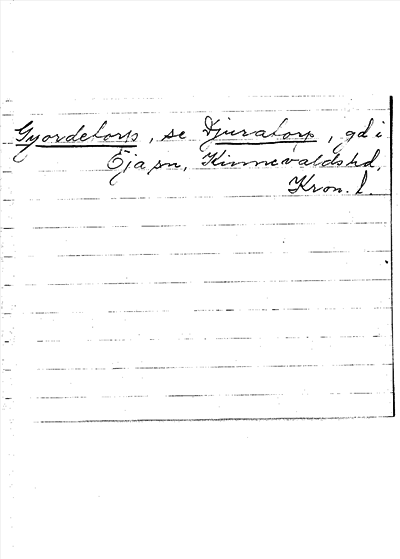 Gyordetorp, se Djuratorp, gd i
Öja sn, Kinnevaldshd,
Kron. l.